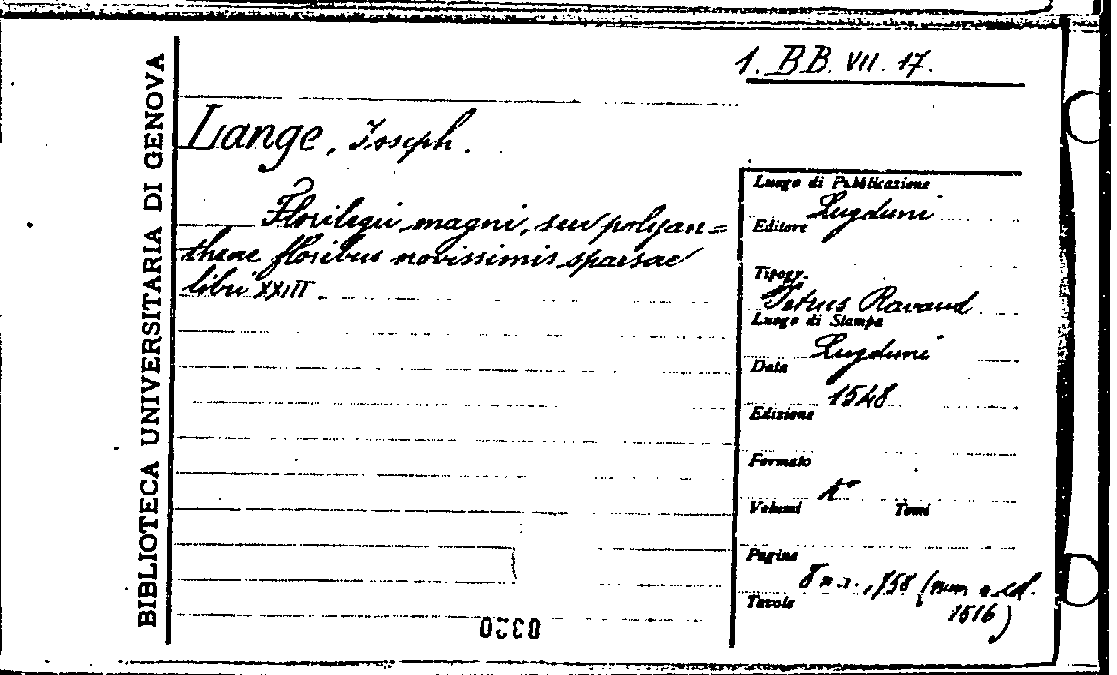 1. BB. VII. 17.
BIBLIOTECA UNIVERSITARIA DI GENOVA
Lange, Joseph.
Florilegii magni, seu polyan=
theae floribus novissimis sparsae
libri XXIII
Luogo di Pubblicazione
Lugduni
Editore
Tipogr.
Petrus Ravaud
Luogo di Stampa
Lugduni
Data
1548
Edizione
Formato
4°
Volumi Tomi
Pagine
8 n.n., 758 (num
Tavole
1516)
0320